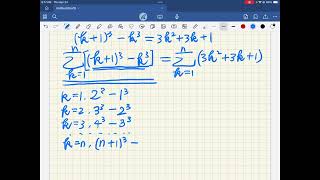 (k+1)³ - k³ = 3k² + 3k + 1
n n
∑ [(k+1)³ - k³] = ∑ (3k² + 3k + 1)
k=1 k=1
k=1. 2³ - 1³
k=2. 3³ - 2³
k=3. 4³ - 3³
k=n. (n+1)³ -